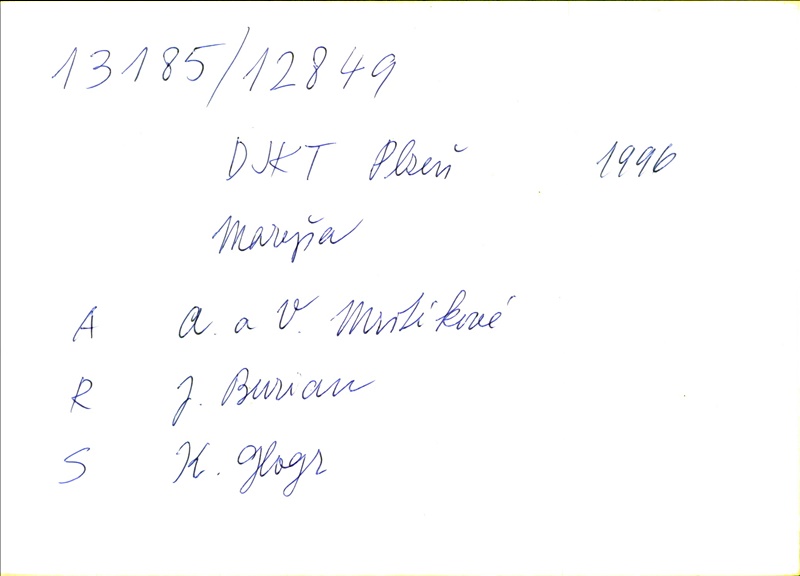 13185/12849
DJKT Plzeň 1996
Maryša
A A. a V. Mrštíkové
R J. Burian
S K. Glogr